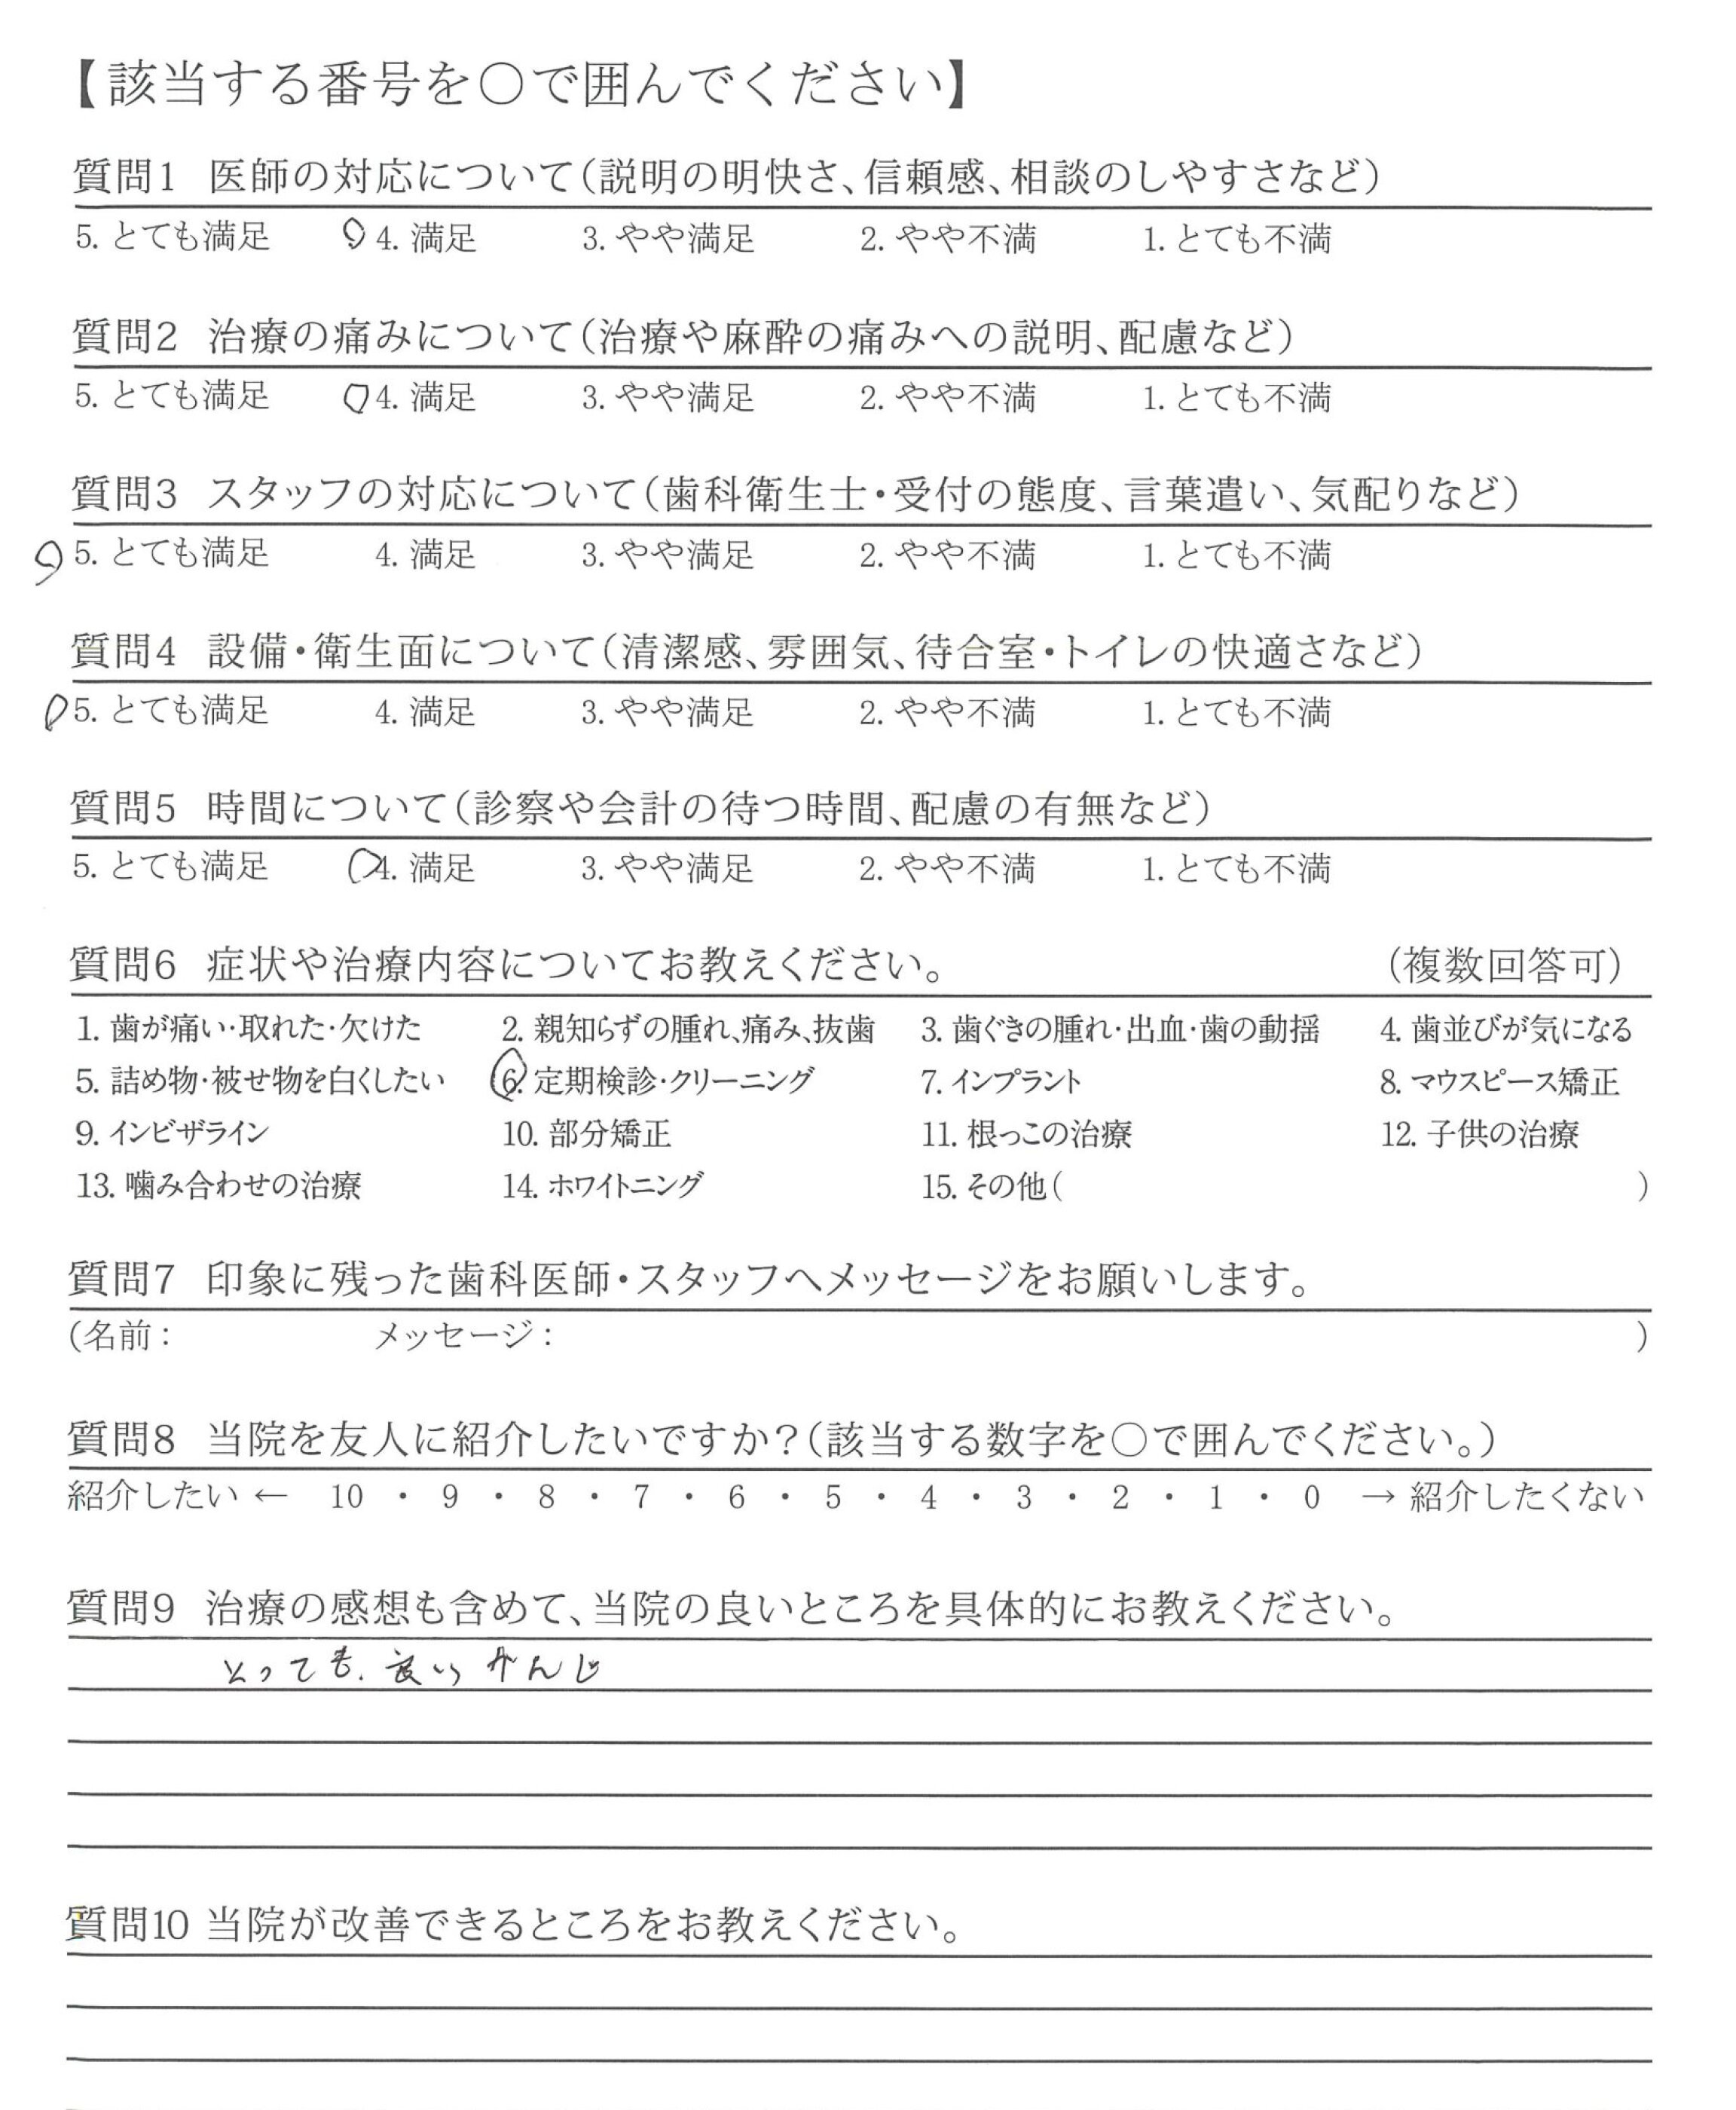 【該当する番号を〇で囲んでください】
質問1 医師の対応について(説明の明快さ、信頼感、相談のしやすさなど)
5. とても満足 4. 満足 3. やや満足 2. やや不満 1. とても不満
質問2 治療の痛みについて(治療や麻酔の痛みへの説明、配慮など)
5. とても満足 4. 満足 3. やや満足 2. やや不満 1. とても不満
質問3 スタッフの対応について(歯科衛生士・受付の態度、言葉遣い、気配りなど)
5. とても満足 4. 満足 3. やや満足 2. やや不満 1. とても不満
質問4 設備・衛生面について(清潔感、雰囲気、待合室・トイレの快適さなど)
5. とても満足 4. 満足 3. やや満足 2. やや不満 1. とても不満
質問5 時間について(診察や会計の待つ時間、配慮の有無など)
5. とても満足 4. 満足 3. やや満足 2. やや不満 1. とても不満
質問6 症状や治療内容についてお教えください。 (複数回答可)
1. 歯が痛い・取れた・欠けた 2. 親知らずの腫れ、痛み、抜歯 3. 歯ぐきの腫れ・出血・歯の動揺 4. 歯並びが気になる
5. 詰め物・被せ物を白くしたい 6. 定期検診・クリーニング 7. インプラント 8. マウスピース矯正
9. インビザライン 10. 部分矯正 11. 根っこの治療 12. 子供の治療
13. 噛み合わせの治療 14. ホワイトニング 15. その他( )
質問7 印象に残った歯科医師・スタッフへメッセージをお願いします。
(名前: メッセージ: )
質問8 当院を友人に紹介したいですか?(該当する数字を〇で囲んでください。)
紹介したい ← 10 ・ 9 ・ 8 ・ 7 ・ 6 ・ 5 ・ 4 ・ 3 ・ 2 ・ 1 ・ 0 → 紹介したくない
質問9 治療の感想も含めて、当院の良いところを具体的にお教えください。
とっても、良いかんじ
質問10 当院が改善できるところをお教えください。